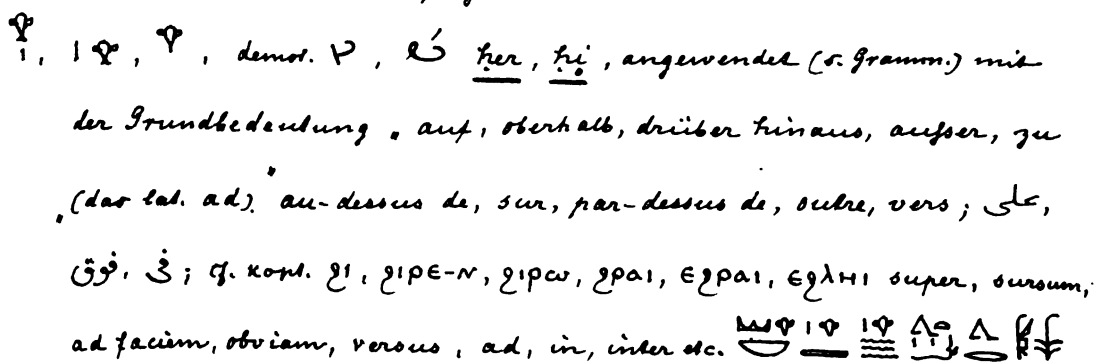 𓁷𓏤, 𓏤𓁷, 𓁷, demot. , ḥer, ḥi, angewendet (s. Gramm.) mit
der Grundbedeutung „auf, oberhalb, drüber hinaus, außer, zu
(das lat. ad)." „au-dessus de, sur, par-dessus de, outre, vers; على,
فوق, فى; cf. kopt. ϩⲓ, ϩⲓⲣⲉ-ⲛ, ϩⲓⲣⲱ, ϩⲣⲁⲓ, ⲉϩⲣⲁⲓ, ⲉϩⲗⲏⲓ super, sursum,
ad faciem, obviam, versus, ad, in, inter etc.